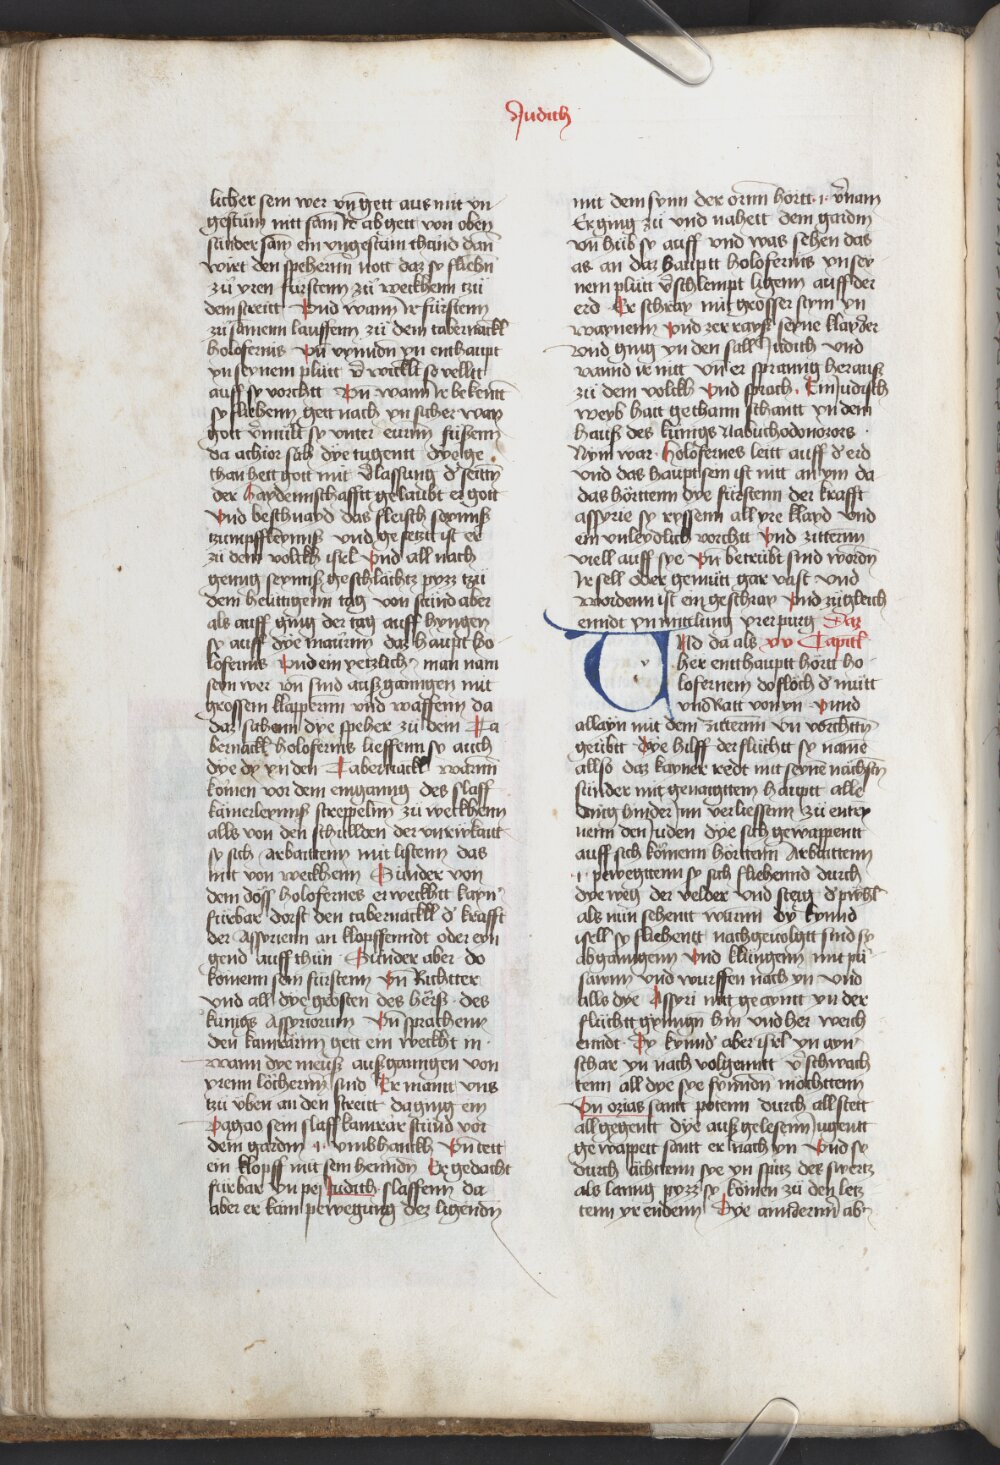 Judith
licher sein wer vn̄ gett aus mit vn
gestüm nitt sam Ir̄ ab gett von oben
sünder sam ein vngestüm thünd dan̄
wirt den spehernn nott daz sy fliehn̄
zü yren fürstenn zü weckhenn tzü
dem streitt Vnd wann Ir̄ fürstenn
zü samenn lauffenn zü dem tabernackl
holofernis Vn̄ vyndn̄ yn enthaupt
yn seynem plütt so vellt
auff sy vorchtt Vn̄ wann Ir̄ bekentt
sy fliehenn gett nach yn sicher wan
gott sy vnter eurnn füssenn
da achior sah dye tugentt dye ge
than hett gott mit v̄lassung d̄ seittn̄
der haydennschafft gelaubt er gott
Vnd beschnayd das fleisch seyniß
vnd gesetzt ist er
zü dem volckh isrl Vnd all nach
geng seyniß geschlächtz pyzz tzü
dem heüttigenn tag von stünd aber
als auff ging der tag auff hyngen
sy auff dye maürnn daz haupt ho
lofernis Vnd ein yetzlich man nam
sein wer vn̄ sind auß gangen mit
grossem klappernn vnd waffenn da
daz sahenn dye speher zü dem Ta
bernackl holofernis lieffenn sy auch
dye dy yn den Tabernackl warnn
komen vor dem eingang des slaff
kämerleyniß zü weckhenn
alls von den schullden der vnrwkaitt
sy sich Arbaittenn mit listenn das
nit von weckhenn Sünder von
dem döss holofernes erweckhtt kayn̄
fürbar dorst den tabernackl d̄ krafft
der Assyrienn an klopffenndt oder eyn
gend auff thün Sünder aber do
komenn sein fürstenn Vn̄ Richtter
vnd all dye grösten des herß des
künigs Assyriorum Vn̄ sprachenn
den kamrärnn gett ein weckht in
wann dye meuß auß gangen von
yrenn löchernn sind Er mant vns
tzü üben an den streitt da ging ein
Vagao sein slaff kamrar stünd vor
dem gardn̄ .i. vmbhanckh Vn̄ tett
ein klopff mit sein henndn̄ Er gedacht
fürbar yn pei Judith slaffenn da
aber er kain pewegung dez ligendn̄
mit dem synn der ornn hörtt .i. v̄nam
Er ging zü vnd nahett dem gardn̄
vn̄ hüb sy auff vnd was sehen das
as an daz hauptt holofernis yn sey
nem plütt v̄schlempt ligenn auff der
erd Er schray mit grosser stym yn
waynenn Vnd zerrayß seyne klayder
vnd ging yn den sall Judith vnd
vannd ir nitt vn̄ er sprang herauß
zü dem volckh Vnd sprach . Ein Judisch
weyb hatt gethann schantt yn dem
hauß des künigs Nabuchodonozors
Nym war holofernes leitt auff d̄ erd
vnd das haupt sein ist nitt an ym da
das hörttenn dye fürstenn der krafft
assyrie sy ryssenn all yre klayd vnd
ein vnleydlich vorchtt Vnd zitternn
viell auff sye Vn̄ betrübt sind wordn̄
Ir sell oder gemütt gar vast vnd
wordenn ist ein geschray Vnd zügleich
enndt yn mittlung yrer purg Daz
VNd da als xv Capittl
her entthauptt hörtt ho
lofernem do flöch d̄ mütt
vnd Ratt von yn Vnnd
allayn mit dem zitternn vn̄ vorchttn̄
geübtt dye hilff der flüchtt sy namē
allso daz kayner redt mit seynē nächsn̄
sünder mit genaigttem hauptt alle
ding hinder im verliessenn zü
nenn den Juden dye sich gewappentt
auff sich kömenn hörttenn Arbaittenn
.i. pewegttenn sy sich fliehennd durch
dye weg der velder vnd steig d̄ pühl
als nün sehentt warnn dy kynnd
isell sy fliehentt nachgevolgtt sind sy
abgangenn Vnd klüngenn mit pü
sawnn vnd wurffen nach yn vnd
alls dye Assyri nit geaynt yn der
flüchtt gyngn̄ hin vnd her weich
enndt Dy kynnd aber isrl yn ayn̄
schar yn nach volgenntt v̄schwach
tenn all dye sye fynndn̄ möchttenn
Vn̄ ozias santt potenn durch all stett
all gegentt dye auß gelesenn Jugentt
gewappett santt er nach yn Vnd sy
durch ächttenn sye yn spitz des swertz
als lanng pyzz sy kömen zü den letz
tenn yr endenn Dye ab̄